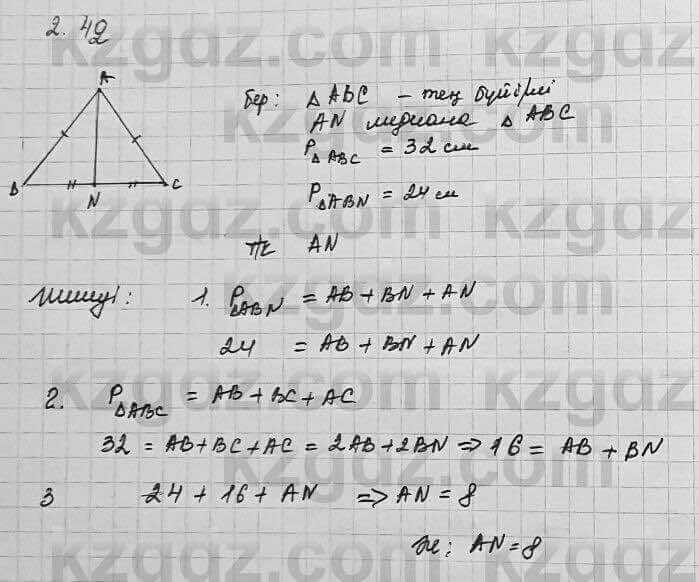 2.42
A
B
N
C
бер: △ABC - тең бүйірлі
AN медиана △ABC
P△ABC = 32 см
P△ABN = 24 см
т/к AN
Шешуі: 1. P△ABN = AB + BN + AN
24 = AB + BN + AN
2. P△ABC = AB + BC + AC
32 = AB + BC + AC = 2AB + 2BN => 16 = AB + BN
3 24 + 16 + AN => AN = 8
Ж: AN = 8
kzgdz.com